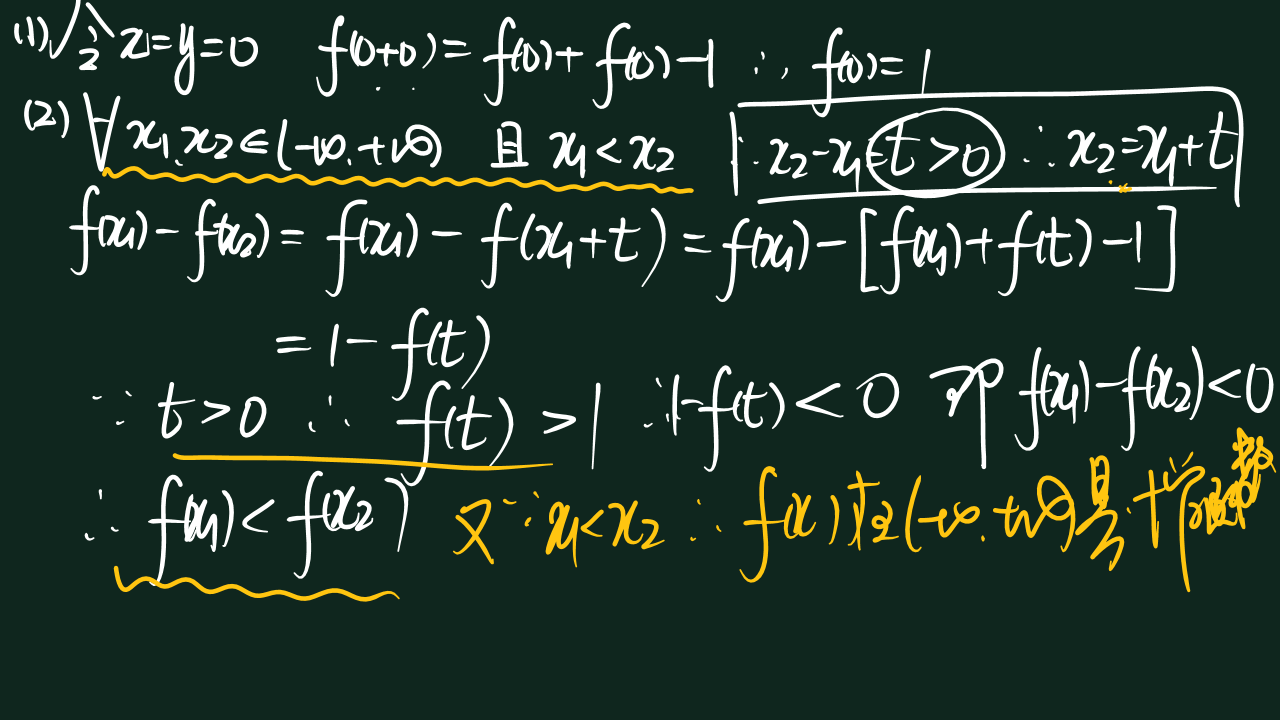 (1) 令x=y=0 f(0+0)=f(0)+f(0)-1 ∴f(0)=1
(2) ∀x₁,x₂∈(-∞,+∞) 且 x₁<x₂ ∵x₂-x₁=t>0 ∴x₂=x₁+t
f(x₁)-f(x₂)=f(x₁)-f(x₁+t)=f(x₁)-[f(x₁)+f(t)-1]
=1-f(t)
∵t>0 ∴f(t)>1 ∴1-f(t)<0 即 f(x₁)-f(x₂)<0
∴f(x₁)<f(x₂) 又∵x₁<x₂ ∴f(x)在(-∞,+∞)是增函数